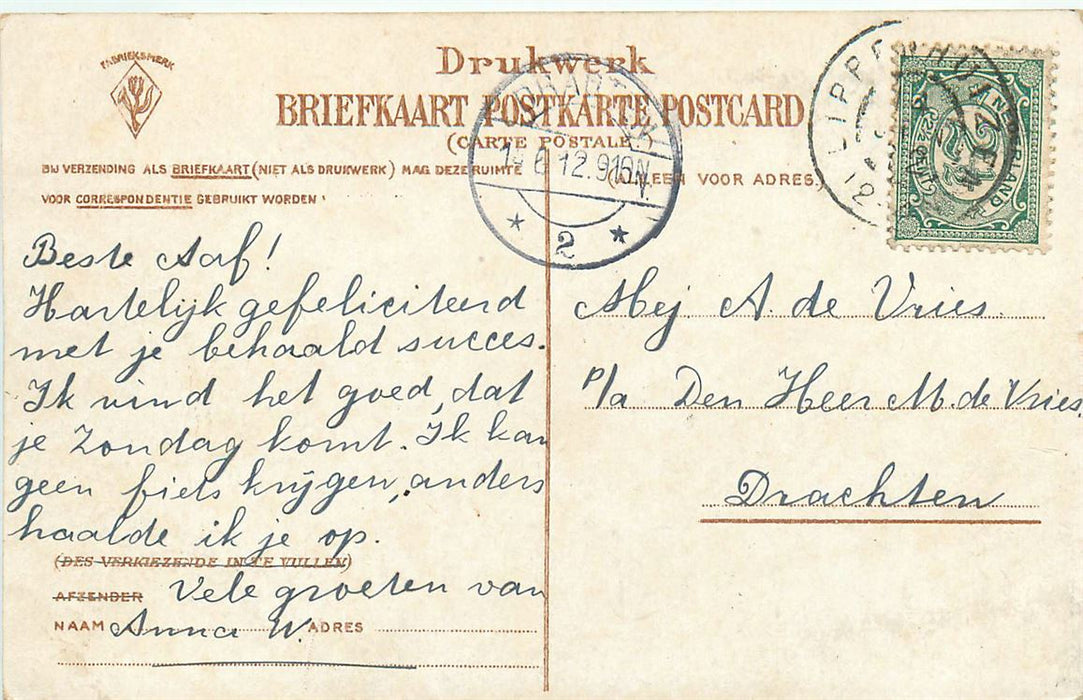 FABRIEKSMERK
Drukwerk
BRIEFKAART POSTKARTE POSTCARD
(CARTE POSTALE
BIJ VERZENDING ALS BRIEFKAART (NIET ALS DRUKWERK) MAG DEZE RUIMTE
VOOR CORRESPONDENTIE GEBRUIKT WORDEN
VOOR ADRES.)
6 12. 9
N.
2
LIPPENHUIZEN
NEDERLAND
2½
Beste Aaf!
Hartelijk gefeliciteerd
met je behaald succes.
Ik vind het goed, dat
je Zondag komt. Ik kan
geen fiets krijgen, anders
haalde ik je op.
(DES VERKIEZENDE IN TE VULLEN)
AFZENDER Vele groeten van
NAAM Anna W. ADRES
Mej A. de Vries
p/a Den Heer M. de Vries,
Drachten